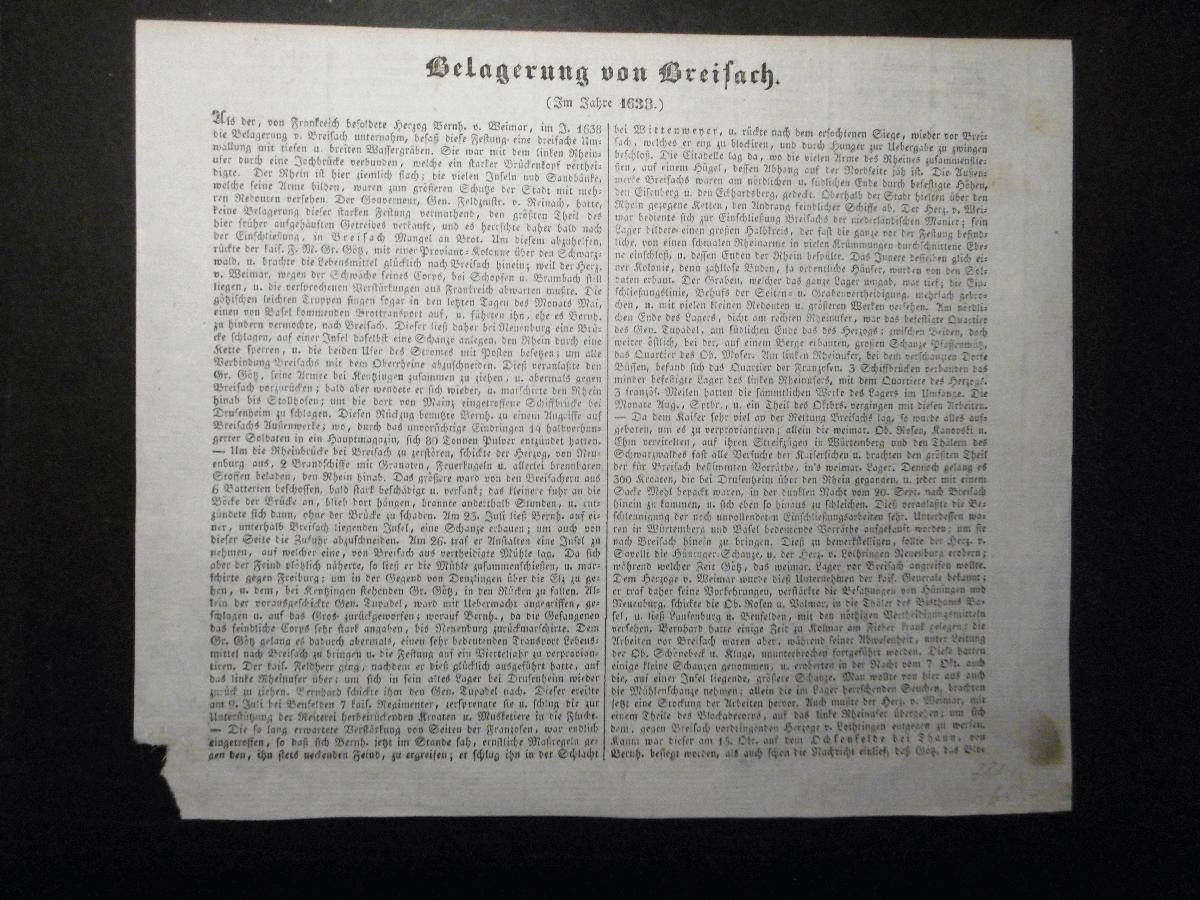 Belagerung von Breisach.
(Im Jahre 1638.)
Als der, von Frankreich besoldete Herzog Bernh. v. Weimar, im J. 1638
die Belagerung v. Breisach unternahm, besaß diese Festung eine dreifache Um-
wallung mit tiefen u. breiten Wassergräben. Sie war mit dem linken Rhein-
ufer durch eine Jochbrücke verbunden, welche ein starker Brückenkopf verthei-
digte. Der Rhein ist hier ziemlich flach; die vielen Inseln und Sandbänke,
welche seine Arme bilden, waren zum größeren Schutze der Stadt mit meh-
ren Redouten versehen. Der Gouverneur, Gen. Feldzmstr. v. Reinach, hatte,
keine Belagerung dieser starken Festung vermuthend, den größten Theil des
hier früher aufgehäuften Getreides verkauft, und es herrschte daher bald nach
der Einschließung, in Breisach Mangel an Brot. Um diesem abzuhelfen,
rückte der kais. F. M. Gr. Götz, mit einer Proviant-Kolonne über den Schwarz-
wald, u. brachte die Lebensmittel glücklich nach Breisach hinein; weil der Herz.
v. Weimar, wegen der Schwäche seines Corps, bei Schopfen u. Brambach still
liegen, u. die versprochenen Verstärkungen aus Frankreich abwarten mußte. Die
götzischen leichten Truppen fingen sogar in den letzten Tagen des Monats Mai,
einen von Basel kommenden Brottransport auf, u. führten ihn, ehe es Bernh.
zu hindern vermochte, nach Breisach. Dieser ließ daher bei Neuenburg eine Brü-
cke schlagen, auf einer Insel daselbst eine Schanze anlegen, den Rhein durch eine
Kette sperren, u. die beiden Ufer des Stromes mit Posten besetzen; um alle
Verbindung Breisachs mit dem Oberrheine abzuschneiden. Dieß veranlaßte den
Gr. Götz, seine Armee bei Kentzingen zusammen zu ziehen, u. abermals gegen
Breisach vorzurücken; bald aber wendete er sich wieder, u. marschirte den Rhein
hinab bis Stollhofen; um die dort von Mainz eingetroffene Schiffbrücke bei
Drusenheim zu schlagen. Diesen Rückzug benutzte Bernh. zu einem Angriffe auf
Breisachs Außenwerke; wo, durch das unvorsichtige Eindringen 14 halbverhun-
gerter Soldaten in ein Hauptmagazin, sich 80 Tonnen Pulver entzündet hatten.
— Um die Rheinbrücke bei Breisach zu zerstören, schickte der Herzog, von Neu-
enburg aus, 2 Brandschiffe mit Granaten, Feuerkugeln u. allerlei brennbaren
Stoffen beladen, den Rhein hinab. Das größere ward von den Breisachern aus
6 Batterien beschossen, bald stark beschädigt u. versank; das kleinere fuhr an die
Böcke der Brücke an, blieb dort hängen, brannte anderthalb Stunden, u. ent-
zündete sich dann, ohne der Brücke zu schaden. Am 23. Juli ließ Bernh. auf ei-
ner, unterhalb Breisach liegenden Insel, eine Schanze erbauen; um auch von
dieser Seite die Zufuhr abzuschneiden. Am 26. traf er Anstalten eine Insel zu
nehmen, auf welcher eine, von Breisach aus vertheidigte Mühle lag. Da sich
aber der Feind plötzlich näherte, so ließ er die Mühle zusammenschießen, u. mar-
schirte gegen Freiburg; um in der Gegend von Denzlingen über die Elz zu ge-
hen, u. dem, bei Kentzingen stehenden Gr. Götz, in den Rücken zu fallen. Al-
lein der vorausgeschickte Gen. Tupadel, ward mit Uebermacht angegriffen, ge-
schlagen u. auf das Gros zurückgeworfen; worauf Bernh., da die Gefangenen
das feindliche Corps sehr stark angaben, bis Neuenburg zurückmarschirte. Dem
Gr. Götz gelang es dadurch abermals, einen sehr bedeutenden Transport Lebens-
mittel nach Breisach zu bringen u. die Festung auf ein Vierteljahr zu verprovian-
tiren. Der kais. Feldherr ging, nachdem er dieß glücklich ausgeführt hatte, auf
das linke Rheinufer über; um sich in sein altes Lager bei Drusenheim wieder
zurück zu ziehen. Bernhard schickte ihm den Gen. Tupadel nach. Dieser ereilte
am 9. Juli bei Benfelden 7 kais. Regimenter, zersprengte sie u. schlug die zur
Unterstützung der Reiterei herbeirückenden Kroaten u. Musketiere in die Flucht.
— Die so lang erwartete Verstärkung von Seiten der Franzosen, war endlich
eingetroffen, so daß sich Bernh. jetzt im Stande sah, ernstliche Maßregeln ge-
gen den, ihn stets neckenden Feind, zu ergreifen; er schlug ihn in der Schlacht
bei Wittenweyer, u. rückte nach dem erfochtenen Siege, wieder vor Brei-
sach, welches er eng zu blockiren, und durch Hunger zur Uebergabe zu zwingen
beschloß. Die Citadelle lag da, wo die vielen Arme des Rheines zusammenflie-
ßen, auf einem Hügel, dessen Abhang auf der Nordseite jäh ist. Die Außen-
werke Breisachs waren am nördlichen u. südlichen Ende durch befestigte Höhen,
den Eisenberg u. den Eckhardsberg, gedeckt. Oberhalb der Stadt hielten über den
Rhein gezogene Ketten, den Andrang feindlicher Schiffe ab. Der Herz. v. Wei-
mar bediente sich zur Einschließung Breisachs der niederländischen Manier; sein
Lager bildete einen großen Halbkreis, der fast die ganze vor der Festung befind-
liche, von einem schmalen Rheinarme in vielen Krümmungen durchschnittene Ebe-
ne einschloß, u. dessen Enden der Rhein bespülte. Das Innere desselben glich ei-
ner Kolonie, denn zahllose Buden, ja ordentliche Häuser, wurden von den Sol-
daten erbaut. Der Graben, welcher das ganze Lager umgab, war tief; die Ein-
schließungslinie, Behufs der Seiten- u. Grabenvertheidigung, mehrfach gebro-
chen, u. mit vielen kleinen Redouten u. größeren Werken versehen. Am nördli-
chen Ende des Lagers, dicht am rechten Rheinufer, war das befestigte Quartier
des Gen. Tupadel, am südlichen Ende das des Herzogs; zwischen Beiden, doch
weiter östlich, bei der, auf einem Berge erbauten, großen Schanze Pfaffenmütz,
das Quartier des Ob. Moser. Am linken Rheinufer, bei dem verschanzten Dorfe
Büssen, befand sich das Quartier der Franzosen. 3 Schiffbrücken verbanden das
minder befestigte Lager des linken Rheinufers, mit dem Quartiere des Herzogs.
3 französ. Meilen hatten die sämmtlichen Werke des Lagers im Umfange. Die
Monate Aug., Sptbr., u. ein Theil des Oktbrs. vergingen mit diesen Arbeiten.
— Da dem Kaiser sehr viel an der Rettung Breisachs lag, so wurde alles auf-
geboten, um es zu verproviantiren; allein die weimar. Ob. Rosen, Kanovski u.
Ehm vereitelten, auf ihren Streifzügen in Würtemberg und den Thälern des
Schwarzwaldes fast alle Versuche der Kaiserlichen u. brachten den größten Theil
der für Breisach bestimmten Vorräthe, in's weimar. Lager. Dennoch gelang es
300 Kroaten, die bei Drusenheim über den Rhein gegangen u. jeder mit einem
Sacke Mehl bepackt waren, in der dunklen Nacht vom 20. Sept. nach Breisach
hinein zu kommen, u. sich eben so hinaus zu schleichen. Dieß veranlaßte die Be-
schleunigung der noch unvollendeten Einschließungsarbeiten sehr. Unterdessen wa-
ren in Würtemberg und Basel bedeutende Vorräthe aufgekauft worden; um sie
nach Breisach hinein zu bringen. Dieß zu bewerkstelligen, sollte der Herz. v.
Savelli die Hüninger-Schanze, u. der Herz. v. Lothringen Neuenburg erobern;
während welcher Zeit Götz, das weimar. Lager vor Breisach angreifen wollte.
Dem Herzoge v. Weimar wurde dieß Unternehmen der kais. Generale bekannt;
er traf daher seine Vorkehrungen, verstärkte die Besatzungen von Hüningen und
Neuenburg, schickte die Ob. Rosen u. Volmar, in die Thäler des Bisthums Ba-
sel, u. ließ Laufenburg u. Benfelden, mit den nöthigen Vertheidigungsmitteln
versehen. Bernhard hatte einige Zeit zu Kolmar am Fieber krank gelegen; die
Arbeiten vor Breisach waren aber, während seiner Abwesenheit, unter Leitung
der Ob. Schönebeck u. Kluge, ununterbrochen fortgeführt worden. Diese hatten
einige kleine Schanzen genommen, u. eroberten in der Nacht vom 7 Okt. auch
die, auf einer Insel liegende, größere Schanze. Man wollte von hier aus auch
die Mühlenschanze nehmen; allein die im Lager herrschenden Seuchen, brachten
jetzt eine Stockung der Arbeiten hervor. Auch mußte der Herz. v. Weimar, mit
einem Theile des Blockadecorps, auf das linke Rheinufer übergehen; um sich
dem, gegen Breisach vordringenden Herzoge v. Lothringen entgegen zu werfen.
Kaum war dieser am 15. Okt. auf dem Ochsenfelde bei Thann, von
Bernh. besiegt worden, als auch schon die Nachricht einlief, daß Götz, das Blo-